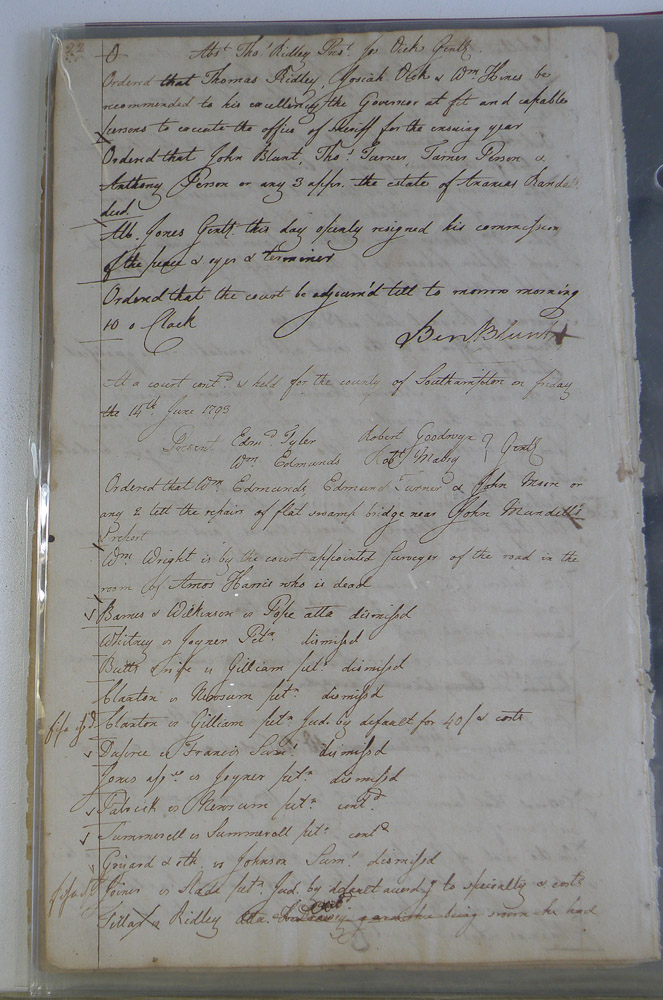 22
Abs.t Tho.s Ridley Pres.t Jo Vick Gent.
Ordered that Thomas Ridley, Josiah Vick & W.m Hines be
recommended to his excellency the Governor at fit and capable
persons to execute the office of Sheriff for the ensuing year
Ordered that John Blunt, Tho.s Turner, Turner Person &
Anthony Person or any 3 appr. the estate of Ananias Randal
decd.
Alb. Jones Gent. this day openly resigned his commission
of the peace & oyer & terminer
Ordered that the court be adjourn'd till to morrow morning
10 o Clock
Ben Blunt
At a court cont.d & held for the county of Southampton on friday
the 14th June 1793
Present Edm.d Tyler Robert Goodwyn
W.m Edmunds Rob.t Mabry } Gent.
Ordered that W.m Edmunds, Edmund Turner & John Moore or
any 2 lett the repairs of flat swamp bridge near John Mundell's
& report
W.m Wright is by the court appointed Surveyor of the road in the
room of Amos Harris who is dead
Barnes & Wilkinson vs Pope atta dismissd
Whitney vs Joyner Pet.n dismissd
Butts & wife vs Gilliam pet.n dismissd
Claxton vs Newsum pet.n dismissd
fi fa Claxton vs Gilliam pet.n Jud. by default for 40/ & costs
Dupree vs Francis Sum.s dismissd
Jones vs Joyner pet.n dismissd
Patrick vs Newsum pet.n cont.d
Summerell vs Summerell pet.n cont.d
& oth. vs Johnson Sum.s dismissd
fi fa Joiner vs Slade pet.n Jud. by default according to specialty & costs
vs Ridley atta. garnishee being sworn she had